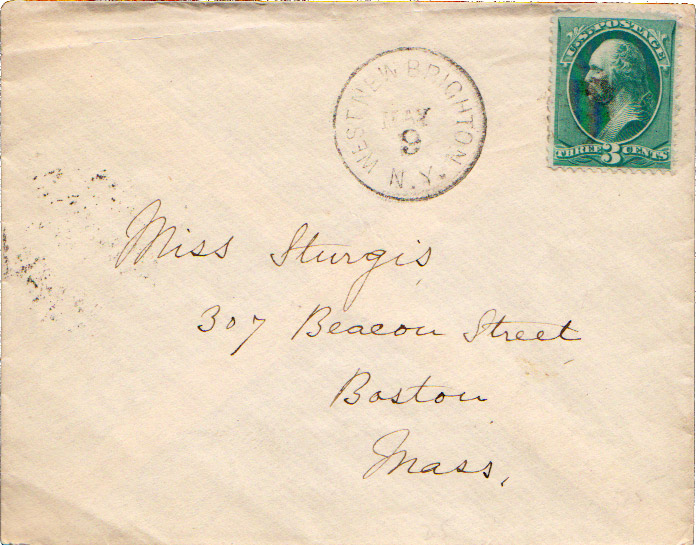 U.S. POSTAGE
THREE 3 CENTS
WEST NEW BRIGHTON
MAY
N.Y.
Miss Sturgis
307 Beacon Street
Boston
Mass.